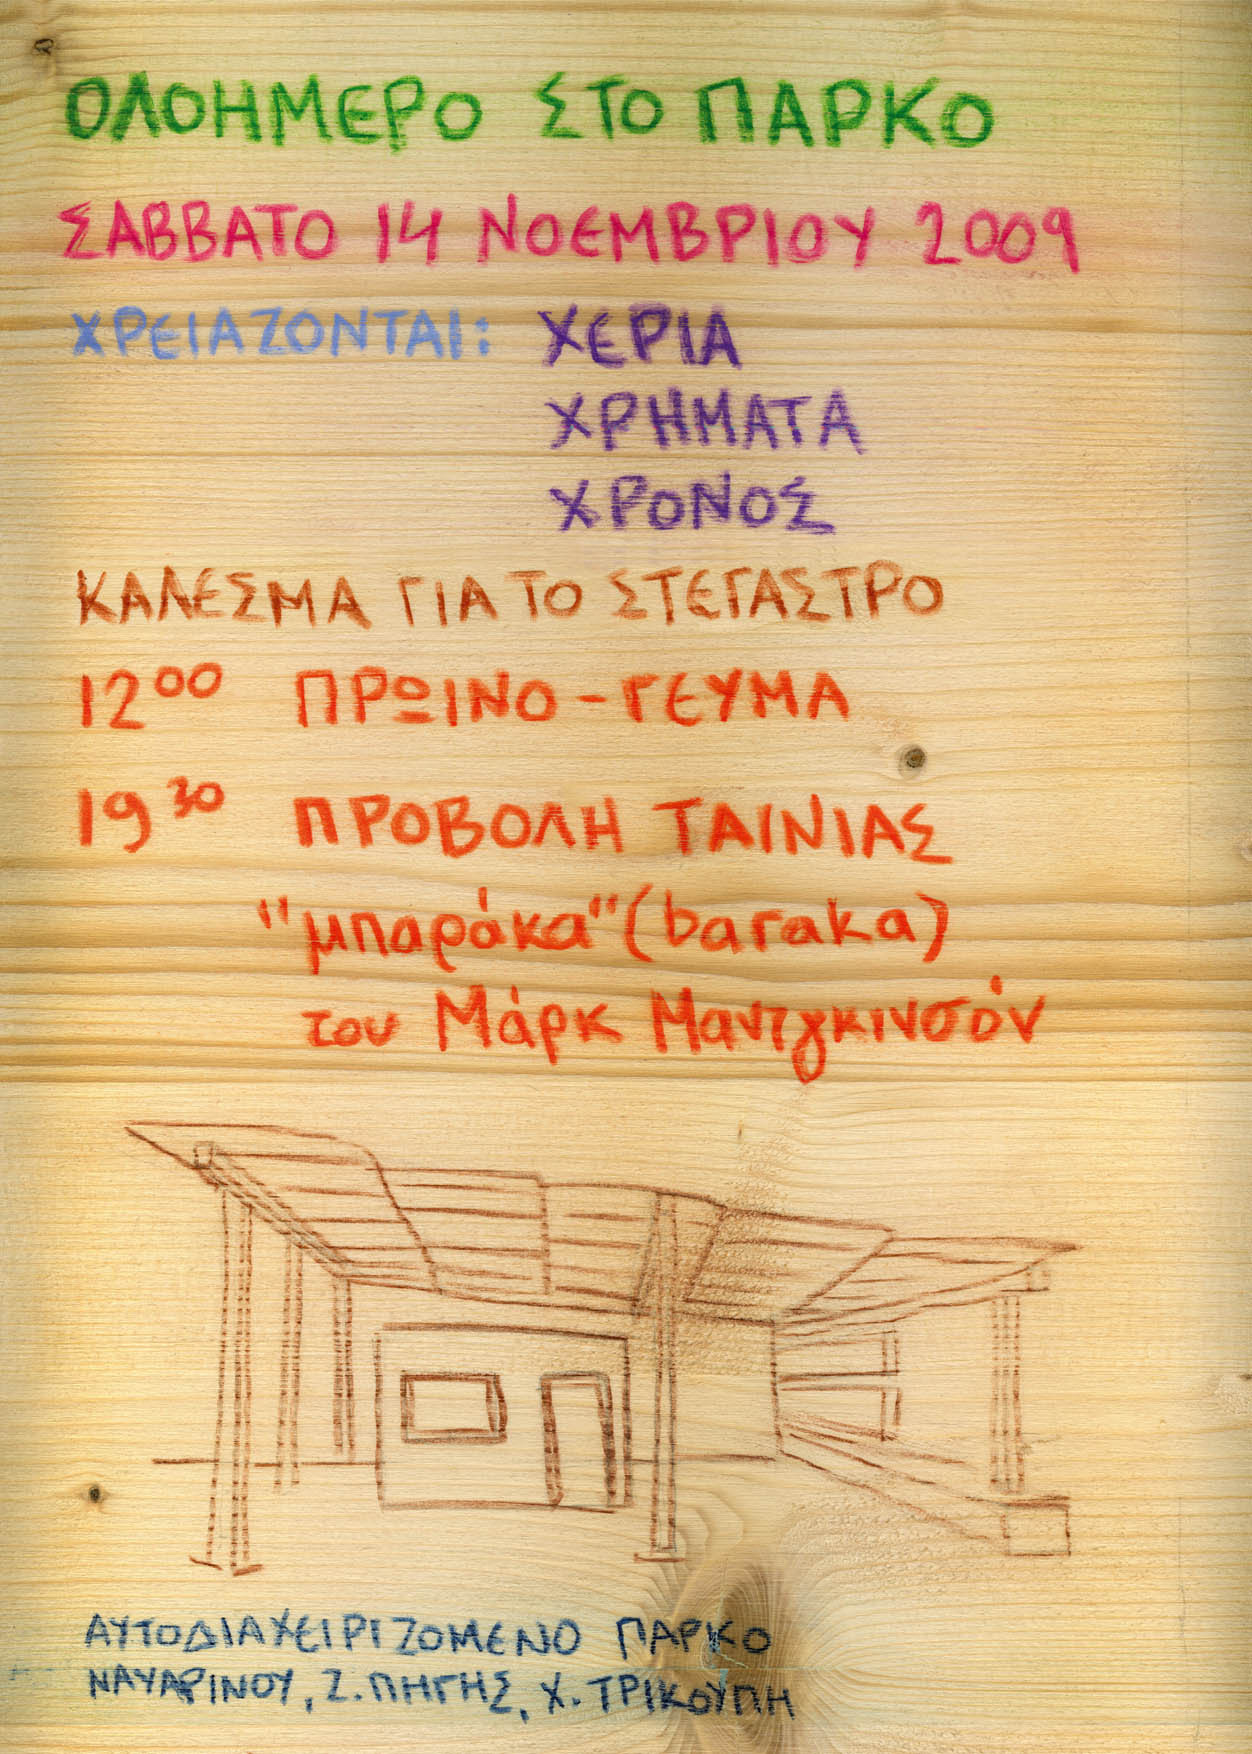 ΟΛΟΗΜΕΡΟ ΣΤΟ ΠΑΡΚΟ
ΣΑΒΒΑΤΟ 14 ΝΟΕΜΒΡΙΟΥ 2009
ΧΡΕΙΑΖΟΝΤΑΙ: ΧΕΡΙΑ
ΧΡΗΜΑΤΑ
ΧΡΟΝΟΣ
ΚΑΛΕΣΜΑ ΓΙΑ ΤΟ ΣΤΕΓΑΣΤΡΟ
12⁰⁰ ΠΡΩΙΝΟ - ΓΕΥΜΑ
19³⁰ ΠΡΟΒΟΛΗ ΤΑΙΝΙΑΣ
"μπαράκα" (baraka)
του Μάρκ Μαντγκινσόν
ΑΥΤΟΔΙΑΧΕΙΡΙΖΟΜΕΝΟ ΠΑΡΚΟ
ΝΑΥΑΡΙΝΟΥ, Ζ. ΠΗΓΗΣ, Χ. ΤΡΙΚΟΥΠΗ